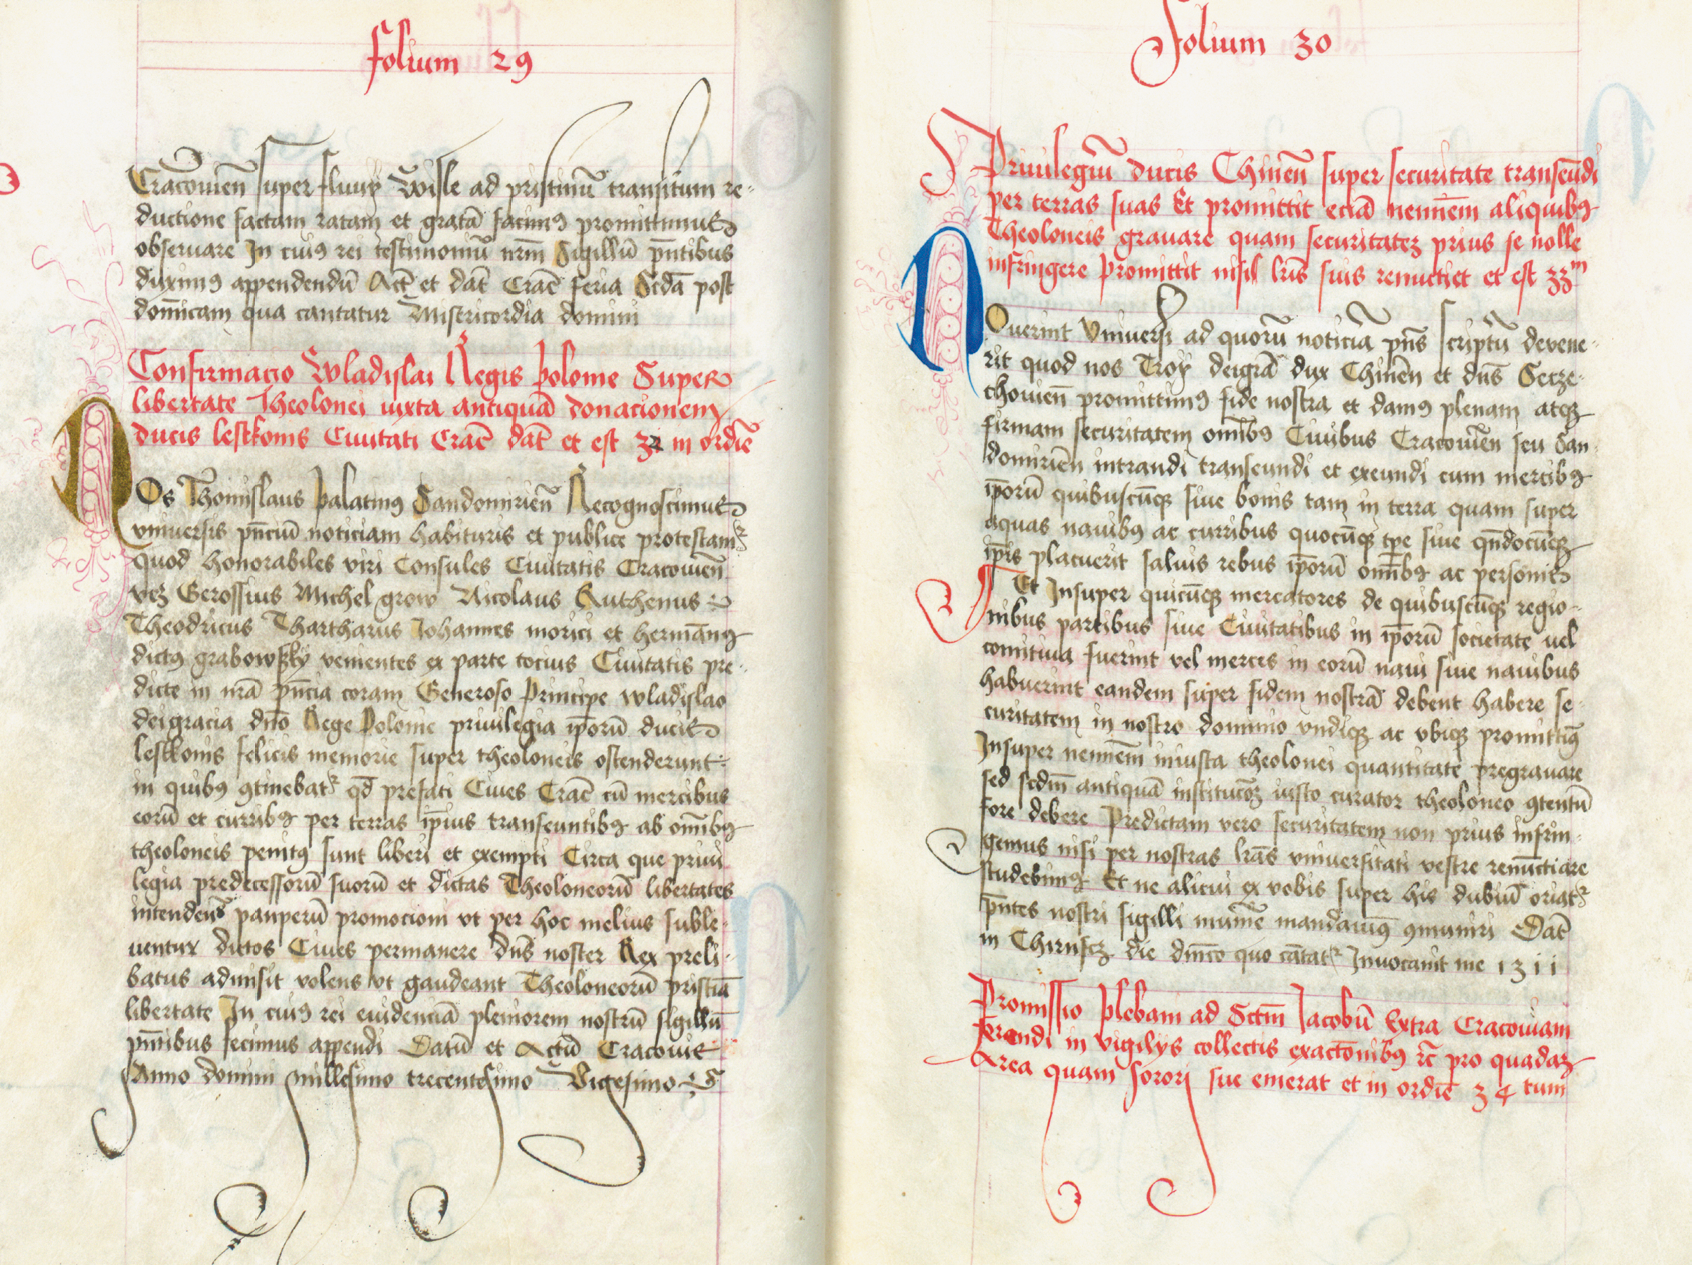 folium 29
Cracouien̄ super fluuÿ Wisle ad pristinū transitum re-
ductione factam ratam et gratā facimꝰ promittimus
obseruare In cuiꝰ rei testimoniū nr̄m Sigillū pn̄tibus
duximꝰ appendendū Act̄ et dat̄ Crac̄ feria Scd̄a post
domīcam qua cantatur Misericordia domini
Confirmacio Wladislai Regis polonie Super
libertate Theolonei iuxta antiquā donacionem
ducis lestkonis Ciuitati Crac̄ dat̄ et est 32 in ordīe
Os Thomislaus palatinꝰ Sandomirien̄ Recognoscimus
vniuersis pn̄ciū noticiam habituris et publice protestamꝰ
quod honorabiles viri Consules Ciuitatis Cracouien̄
vcꝫ Gerossius Michel grow Nicolaus Ruthenus
Theodricus Thartharus Johannes morici et hermānꝰ
dictꝰ grabowsky venientes ex parte tocius Ciuitatis pre-
dicte in nr̄a pn̄cia coram Generoso Principe wladislao
dei gracia dn̄o Rege Polonie priuilegia ip̄orū ducis
lestkonis felicis memorie super theoloneis ostenderunt
in quibꝰ ꝯtinebatʳ qd̄ prefati Ciues Crac̄ cū mercibus
eorū et curribꝰ per terras ip̄ius transeuntibꝰ ab om̄ibꝰ
theoloneis penitꝰ sunt liberi et exempti Circa que priui
legia predecessorū suorū et dictas Theoloneorū libertates
intendens pauperū promocioni vt per hoc melius suble-
uentur dictos Ciues permanere dn̄s noster Rex preli-
batus admisit volens vt gaudeant Theoloneorū pristiā
libertate In cuiꝰ rei euidenciā pleniorem nostrū sigillū
pn̄tibus fecimus appendi Datū et Actū Cracouie
Anno domini millesimo trecentesimo Vigesimo
folium 30
Priuilegiū ducis Chinen̄ super securitate transeūdi
per terras suas Et promittit eciā neminēm aliquibꝰ
Theoloneis grauare quam securitateꝫ prius se nolle
infringere promittit nisi lr̄is suis renuctiet et est 33ᵐ
Ouerint Vniuersi ad quorū noticiā pn̄s scriptū deuene-
rit quod nos Troÿ dei grā dux Chinen̄ et dn̄s Secze-
chouien̄ promittimꝰ fide nostra et damꝰ plenam atqꝫ
firmam securitatem om̄ibꝰ Ciuibus Cracouien̄ seu San-
domirien̄ intrandi transeundi et exeundi cum mercibꝰ
ip̄orū quibuscūqꝫ siue bonis tam in terra quam super
aquas nauibꝰ ac curribus quocūqꝫ tp̄e siue qn̄docūqꝫ
ip̄is placuerit saluis rebus ip̄orū om̄ibꝰ ac personis
Et Insuper quicūqꝫ mercatores de quibuscūqꝫ regio-
nibus partibus siue Ciuitatibus in ip̄orū societate vel
comitiua fuerint vel merces in eorū naui siue nauibus
habuerint eandem super fidem nostrā debent habere se-
curitatem in nostro dominio vndiqꝫ ac vbiqꝫ promittimꝰ
Insuper neminēm iniusta theolonei quantitate pregrauare
sed scd̄m antiquā institucōꝫ iusto curator theoloneo ꝯtentū
fore debere Predictam vero securitatem non prius infrin-
gemus nisi per nostras lr̄as vniuersitati vestre renūctiare
studebimꝰ Et ne alicui ex vobis super his dubiū oriatʳ
pn̄tes nostri sigilli munīe mandauimꝰ ꝯmuniri Dat̄
in Chirnscꝫ die dn̄ico quo cātatʳ Inuocauit me 1311
Promissio plebani ad Sct̄m Jacobū Extra Cracouiam
ferendi in vigilÿs collectis exactōnibꝰ ⁊c̄ pro quadaꝫ
Area quam sorori sue emerat et in ordīe 34 tum